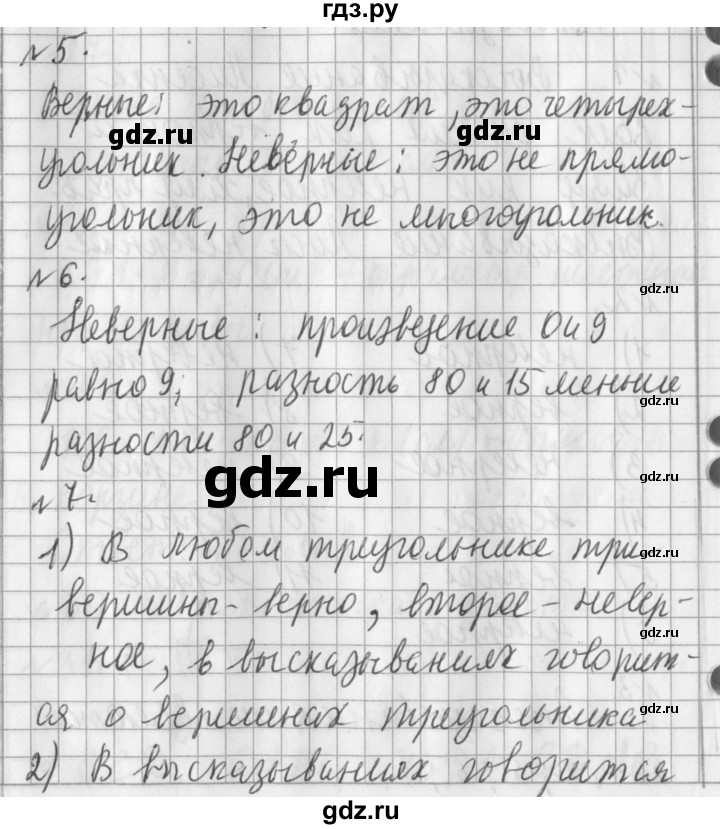 гдз.ру
№5.
Верные: это квадрат, это четырех-
gdz.ru
gdz.ru
угольник. Неверные: это не прямо-
угольник, это не многоугольник.
№6.
gdz.ru
Неверные: произведение 0 и 9
равно 9; разность 80 и 15 меньше
gdz.ru
разности 80 и 25.
gdz.ru
gdz.ru
№7.
1) В любом треугольнике три
gdz.ru
вершины - верно, второе - невер-
gdz.ru
ное, в высказываниях говорит-
ся о вершинах треугольника
gdz.ru
2) В высказываниях говорится
gdz.ru